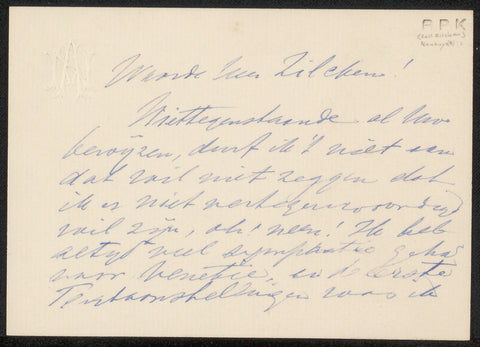 PPK
Waarde Heer Zilcken!
Niettegenstaande al Uw
bewijzen, durf ik 't niet aan
dat wil niet zeggen dat
ik er niet vertegenwoordigd
wil zijn, oh! neen! Ik heb
altijd veel sympathie gehad
voor Venetië, en de eerste
Tentoonstellingen was ik